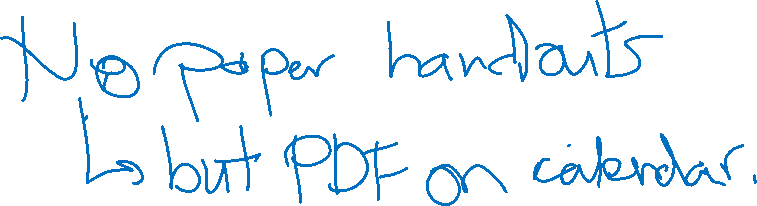 No paper handouts
↳ but PDF on calendar.